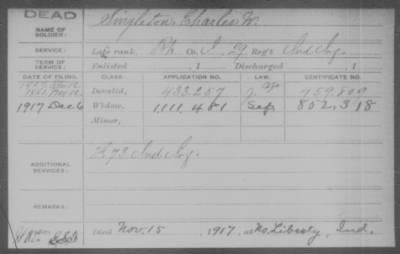 DEAD
NAME OF SOLDIER: Singleton, Charles W.
SERVICE: Late rank, Co. I, 29 Reg't Ind Inf.
TERM OF SERVICE: Enlisted , 1 Discharged , 1
DATE OF FILING. CLASS. APPLICATION NO. LAW. CERTIFICATE NO.
Invalid, 433.257 759.809
1917 Dec 6 Widow, 1,111,481 Sep 852,318
Minor,
ADDITIONAL SERVICES: 73 Ind Inf.
REMARKS:
Died Nov. 15, 1917, at No. Liberty, Ind.